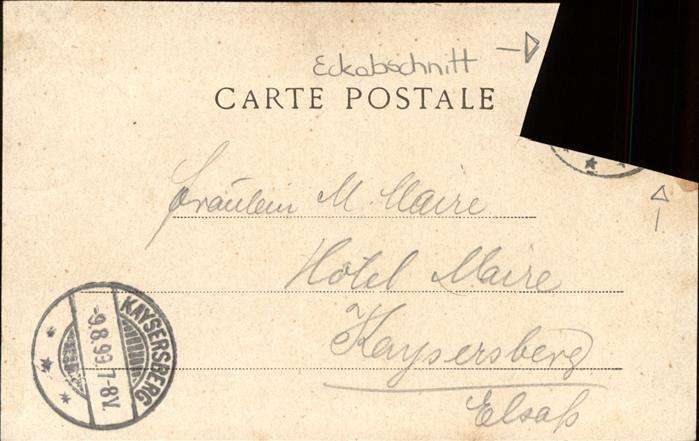 Eckabschnitt
CARTE POSTALE
Fräulein M. Maire
Hotel Maire
Kaysersberg
Elsaß
KAYSERSBERG
-9.8.99.7-8V.